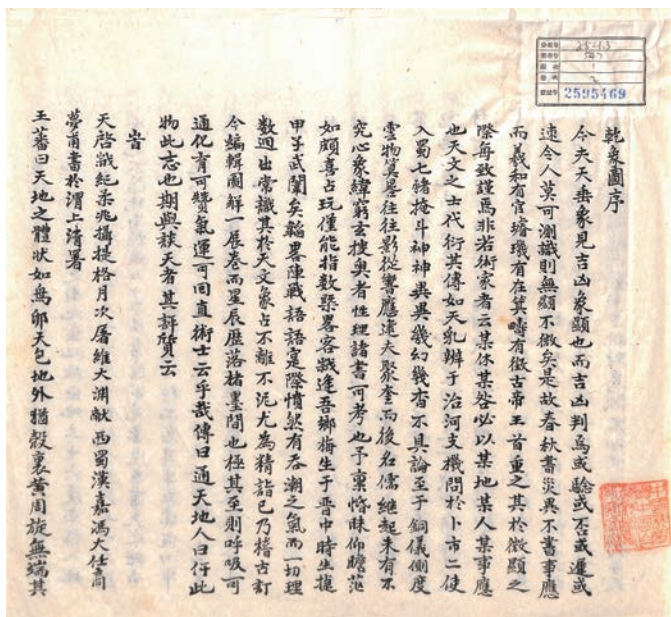 乾象圖序
今夫天垂象見吉凶象顯也而吉凶判焉或驗或否或遲或
速令人莫可測識則無顯不微矣是故春秋書災異不書事應
而羲和有官璿璣有在箕疇有徵古帝王首重之其於微顯之
際每致謹焉非若術家者云某休某咎必以某地某人某事應
也天文之士代衍其傳如天乳辦于治河支機問於卜市二使
入蜀七豬掩斗神神異異幾幻幾杳不具論至于銅儀側度
雲物箕晷往往影從響應逮夫聚奎而後名儒繼起未有不
究心象緯窮玄搜奧者性理諸書可考也予稟惛昧仰瞻茫
如頗喜占玩僅能指數槩畧客歲逢吾鄉梅生于晉中時生攄
甲子武闈矣韜畧陣戰語語寔際憤然有吞潮之氣而一切理
數迥出常識其於天文家占不離不泥尤為精詣已乃稽古訂
今編輯圖解一展卷而星辰歷落楮墨間也極其至則呼吸可
通化育可贊氣運可回直術士云乎哉傳曰通天地人曰仔此
物此志也期與談天者其評質云
旹
天啓歲紀柔兆攝提格月次屠維大淵献西蜀漢嘉馮大任
夢甫書於渭上清署
王蕃曰天地之體狀如鳥卵天包地外猶殼裹黃周旋無端其
2595469